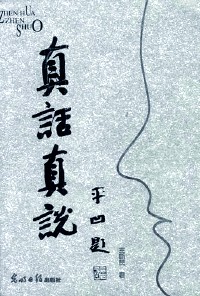 ZHEN HUA
ZHEN
SHUO
真話真說
平凹題
光明日报出版社